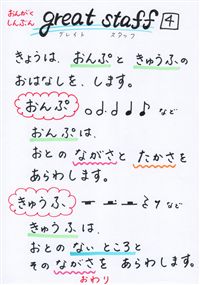 おんがく
しんぶん
great staff 4
グレイト スタッフ
きょうは、おんぷと きゅうふの
おはなしを、します。
おんぷ など
おんぷは、
おとの ながさと たかさを
あらわします。
きゅうふ など
きゅうふは、
おとの ないところと
その ながさを あらわします。
おわり